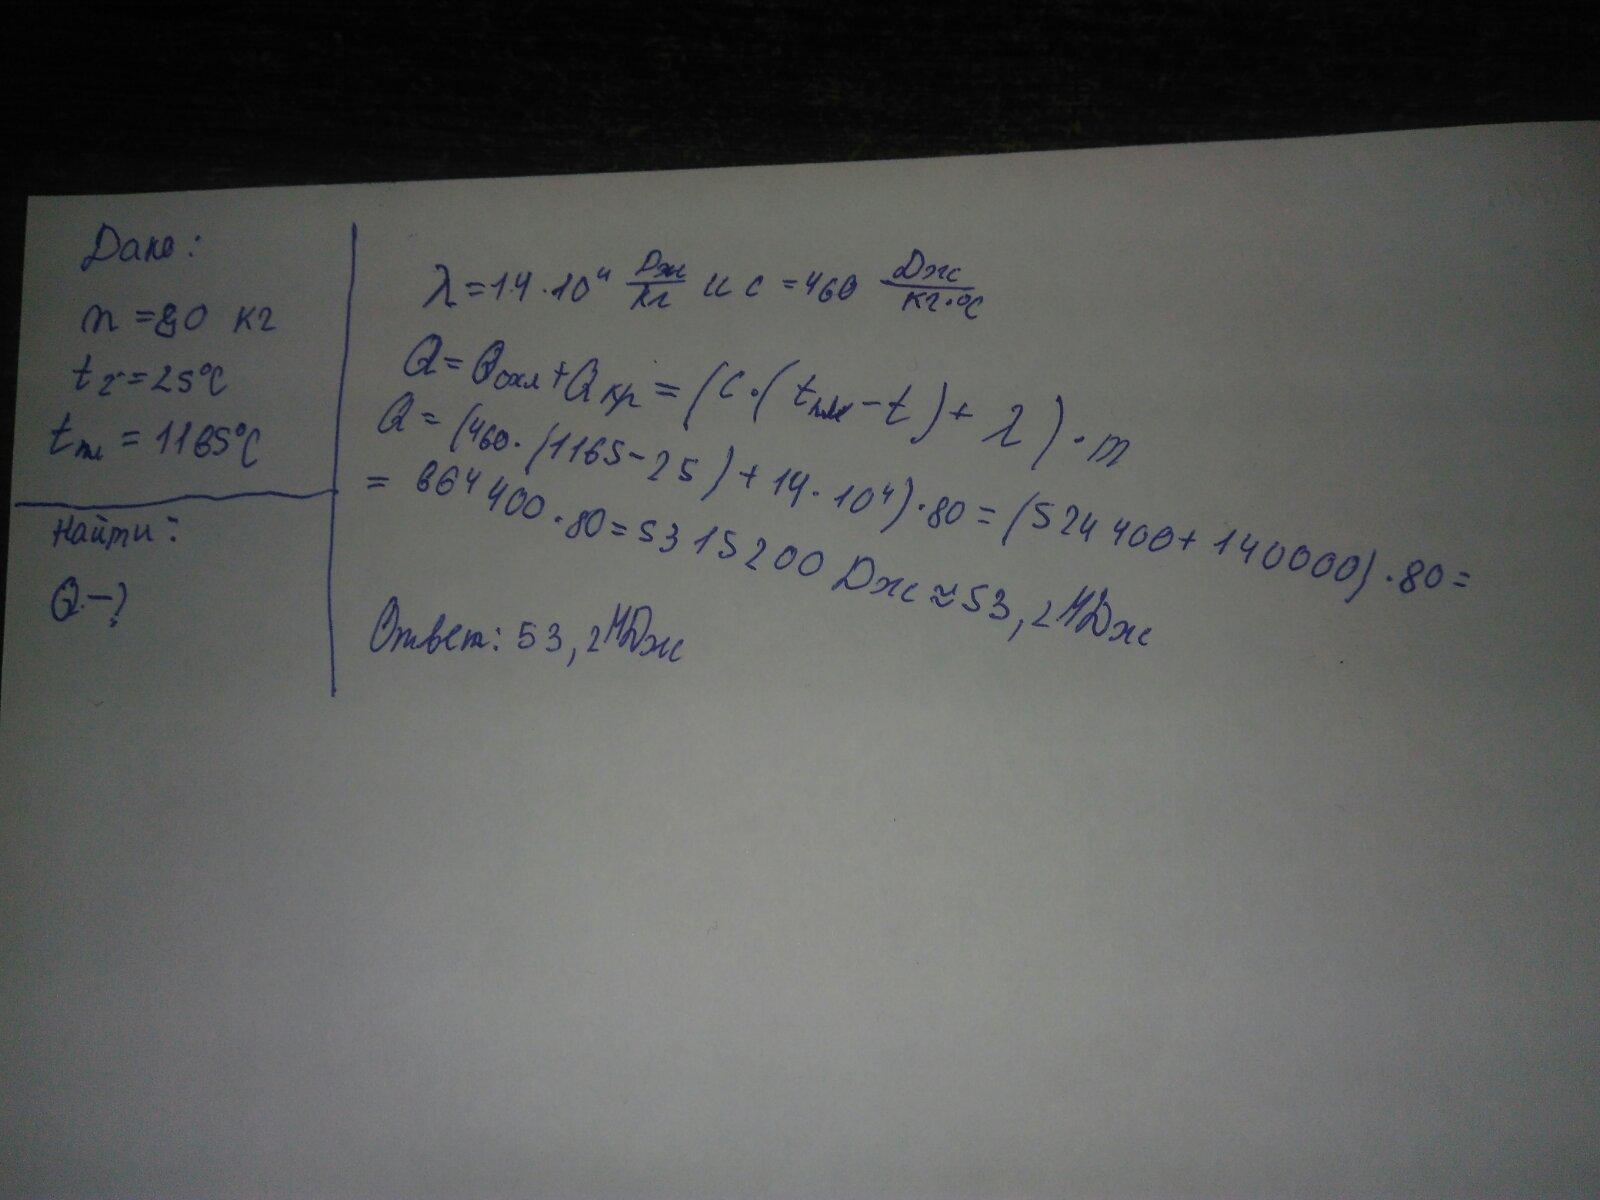 Дано:
m = 80 кг
t₂ = 25°C
tпл = 1165°C
Найти:
Q - ?
λ = 14 · 10⁴ Дж/кг и c = 460 Дж/кг·°C
Q = Qохл + Qкр = (c · (tпл - t) + λ) · m
Q = (460 · (1165 - 25) + 14 · 10⁴) · 80 = (524 400 + 140000) · 80 =
= 664 400 · 80 = 53 15 200 Дж ≈ 53,2 МДж
Ответ: 53,2 МДж